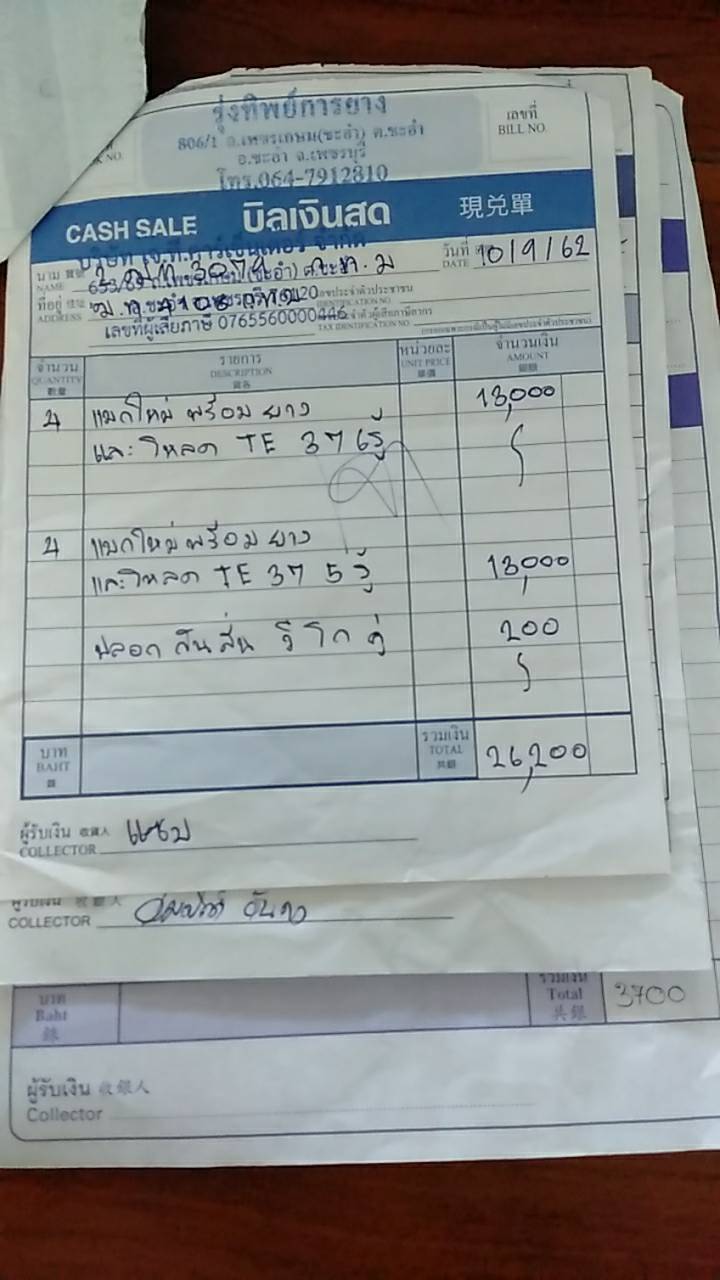 รุ่งทิพย์การยาง
806/1 ถ.เพชรเกษม(ชะอำ) ต.ชะอำ
อ.ชะอำ จ.เพชรบุรี
โทร.064-7912810
NO.
เลขที่
BILL NO.
CASH SALE บิลเงินสด 現兌單
นาม
NAME
วันที่
DATE 10/9/62
ที่อยู่ 住址
ADDRESS
เลขประจำตัวประชาชน
IDENTIFICATION NO.
เลขที่ผู้เสียภาษี 0765560000446
TAX IDENTIFICATION NO.
จำนวน รายการ หน่วยละ จำนวนเงิน
QUANTITY DESCRIPTION UNIT PRICE AMOUNT
數量 貨名 單價 銀額
4 แมกใหม่ พร้อม ยาง 13,000
และโหลด TE 37 6รู
4 แมกใหม่ พร้อม ยาง
และโหลด TE 37 5 รู 13,000
ปลอก สั่น วีโก้ คู่ 200
บาท
BAHT
รวมเงิน
TOTAL 26,200
共銀
ผู้รับเงิน 收銀人
COLLECTOR
ผู้รับเงิน 收銀人
COLLECTOR
บาท
Baht
銖
รวมเงิน
Total 3700
共銀
ผู้รับเงิน 收銀人
Collector